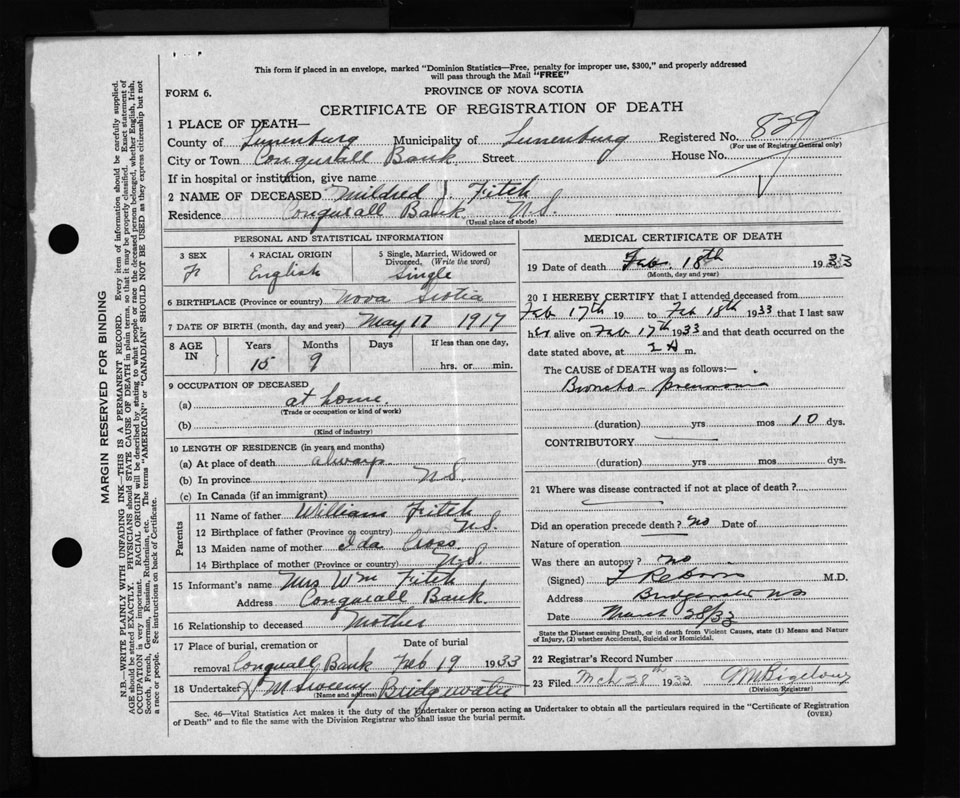 This form if placed in an envelope, marked "Dominion Statistics—Free, penalty for improper use, $300," and properly addressed
will pass through the Mail "FREE"
FORM 6.
PROVINCE OF NOVA SCOTIA
CERTIFICATE OF REGISTRATION OF DEATH
1 PLACE OF DEATH—
County of Lunenburg Municipality of Lunenburg Registered No. 829
(For use of Registrar General only)
City or Town Conquerall Bank Street House No.
If in hospital or institution, give name
2 NAME OF DECEASED Mildred J. Fitch
Residence Conquerall Bank N.S.
(Usual place of abode)
PERSONAL AND STATISTICAL INFORMATION
3 SEX 4 RACIAL ORIGIN 5 Single, Married, Widowed or
Divorced, (Write the word)
F English Single
6 BIRTHPLACE (Province or country) Nova Scotia
7 DATE OF BIRTH (month, day and year) May 17 1917
8 AGE IN Years Months Days If less than one day,
15 9 hrs. or min.
9 OCCUPATION OF DECEASED
(a) at home
(Trade or occupation or kind of work)
(b)
(Kind of industry)
10 LENGTH OF RESIDENCE (in years and months)
(a) At place of death always
(b) In province N.S.
(c) In Canada (if an immigrant)
Parents
11 Name of father William Fitch
12 Birthplace of father (Province or country) N.S.
13 Maiden name of mother Ida Cross
14 Birthplace of mother (Province or country) N.S.
15 Informant's name Mrs Wm Fitch
Address Conquerall Bank
16 Relationship to deceased Mother
17 Place of burial, cremation or Date of burial
removal Conquerall Bank Feb 19 1933
18 Undertaker Bridgewater
(Name and address)
MEDICAL CERTIFICATE OF DEATH
19 Date of death Feb. 18th 1933
(Month, day and year)
20 I HEREBY CERTIFY that I attended deceased from
Feb 17th 19 to Feb 18th 1933 that I last saw
her alive on Feb 17th 1933 and that death occurred on
date stated above, at 2 A m.
The CAUSE of DEATH was as follows:—
Broncho-pneumonia
(duration) yrs mos 10 dys.
CONTRIBUTORY
(duration) yrs mos dys.
21 Where was disease contracted if not at place of death?
Did an operation precede death? no Date of
Nature of operation
Was there an autopsy? no
(Signed) M.D.
Address Bridgewater NS
Date March 28/33
State the Disease causing Death, or in death from Violent Causes, state (1) Means and Nature
of Injury, (2) whether Accidental, Suicidal or Homicidal.
22 Registrar's Record Number
23 Filed Mch 28th 1933 Bigelow
(Division Registrar)
Sec. 46—Vital Statistics Act makes it the duty of the Undertaker or person acting as Undertaker to obtain all the particulars required in the "Certificate of Registration
of Death" and to file the same with the Division Registrar who shall issue the burial permit.
(OVER)
MARGIN RESERVED FOR BINDING
N.B.—WRITE PLAINLY WITH UNFADING INK—THIS IS A PERMANENT RECORD. Every item of information should be carefully supplied.
AGE should be stated EXACTLY. PHYSICIANS should STATE CAUSE OF DEATH in plain terms, so that it may be properly classified. Exact statement of
OCCUPATION is very important. RACIAL ORIGIN will be described by stating to what people or race the deceased person belonged, whether English, Irish,
Scotch, French, German, Russian, Ruthenian, etc. The terms "AMERICAN" or "CANADIAN" SHOULD NOT BE USED as they express citizenship but not
a race or people. See instructions on back of Certificate.